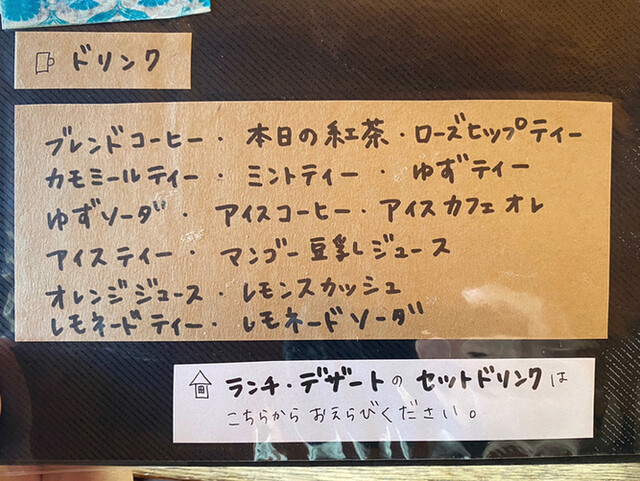 ドリンク
ブレンドコーヒー・本日の紅茶・ローズヒップティー
カモミールティー・ミントティー・ゆずティー
ゆずソーダ・アイスコーヒー・アイスカフェオレ
アイスティー・マンゴー豆乳ジュース
オレンジジュース・レモンスカッシュ
レモネードティー・レモネードソーダ
ランチ・デザートのセットドリンクは
こちらからおえらびください。